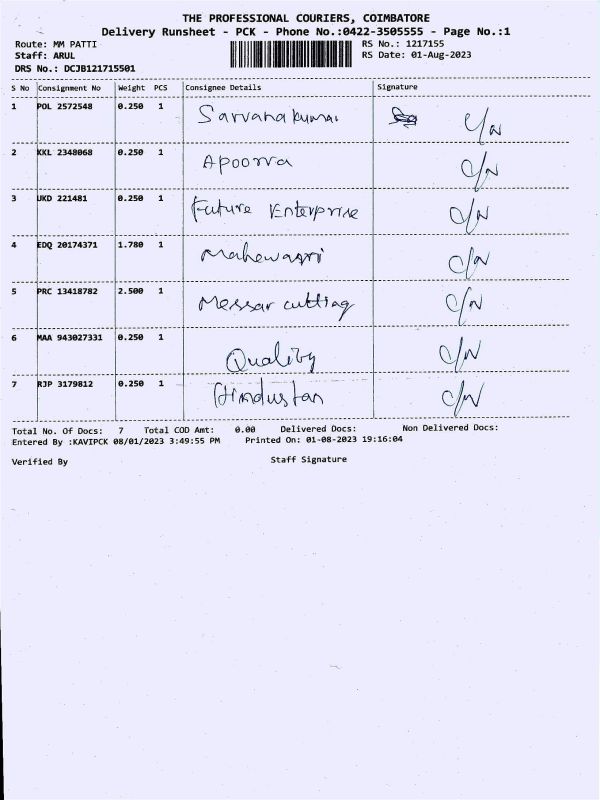 THE PROFESSIONAL COURIERS, COIMBATORE
Delivery Runsheet - PCK - Phone No.:0422-3505555 - Page No.:1
Route: MM PATTI RS No.: 1217155
Staff: ARUL RS Date: 01-Aug-2023
DRS No.: DCJB121715501
S No Consignment No Weight PCS Consignee Details Signature
1 POL 2572548 0.250 1 Sarvanakumar C/N
2 KKL 2348068 0.250 1 Apoorva C/N
3 UKD 221481 0.250 1 Future Enterprise C/N
4 EDQ 20174371 1.780 1 C/N
5 PRC 13418782 2.500 1 Messar cutting C/N
6 MAA 943027331 0.250 1 Quality C/N
7 RJP 3179812 0.250 1 Hindustan C/N
Total No. Of Docs: 7 Total COD Amt: 0.00 Delivered Docs: Non Delivered Docs:
Entered By :KAVIPCK 08/01/2023 3:49:55 PM Printed On: 01-08-2023 19:16:04
Verified By Staff Signature